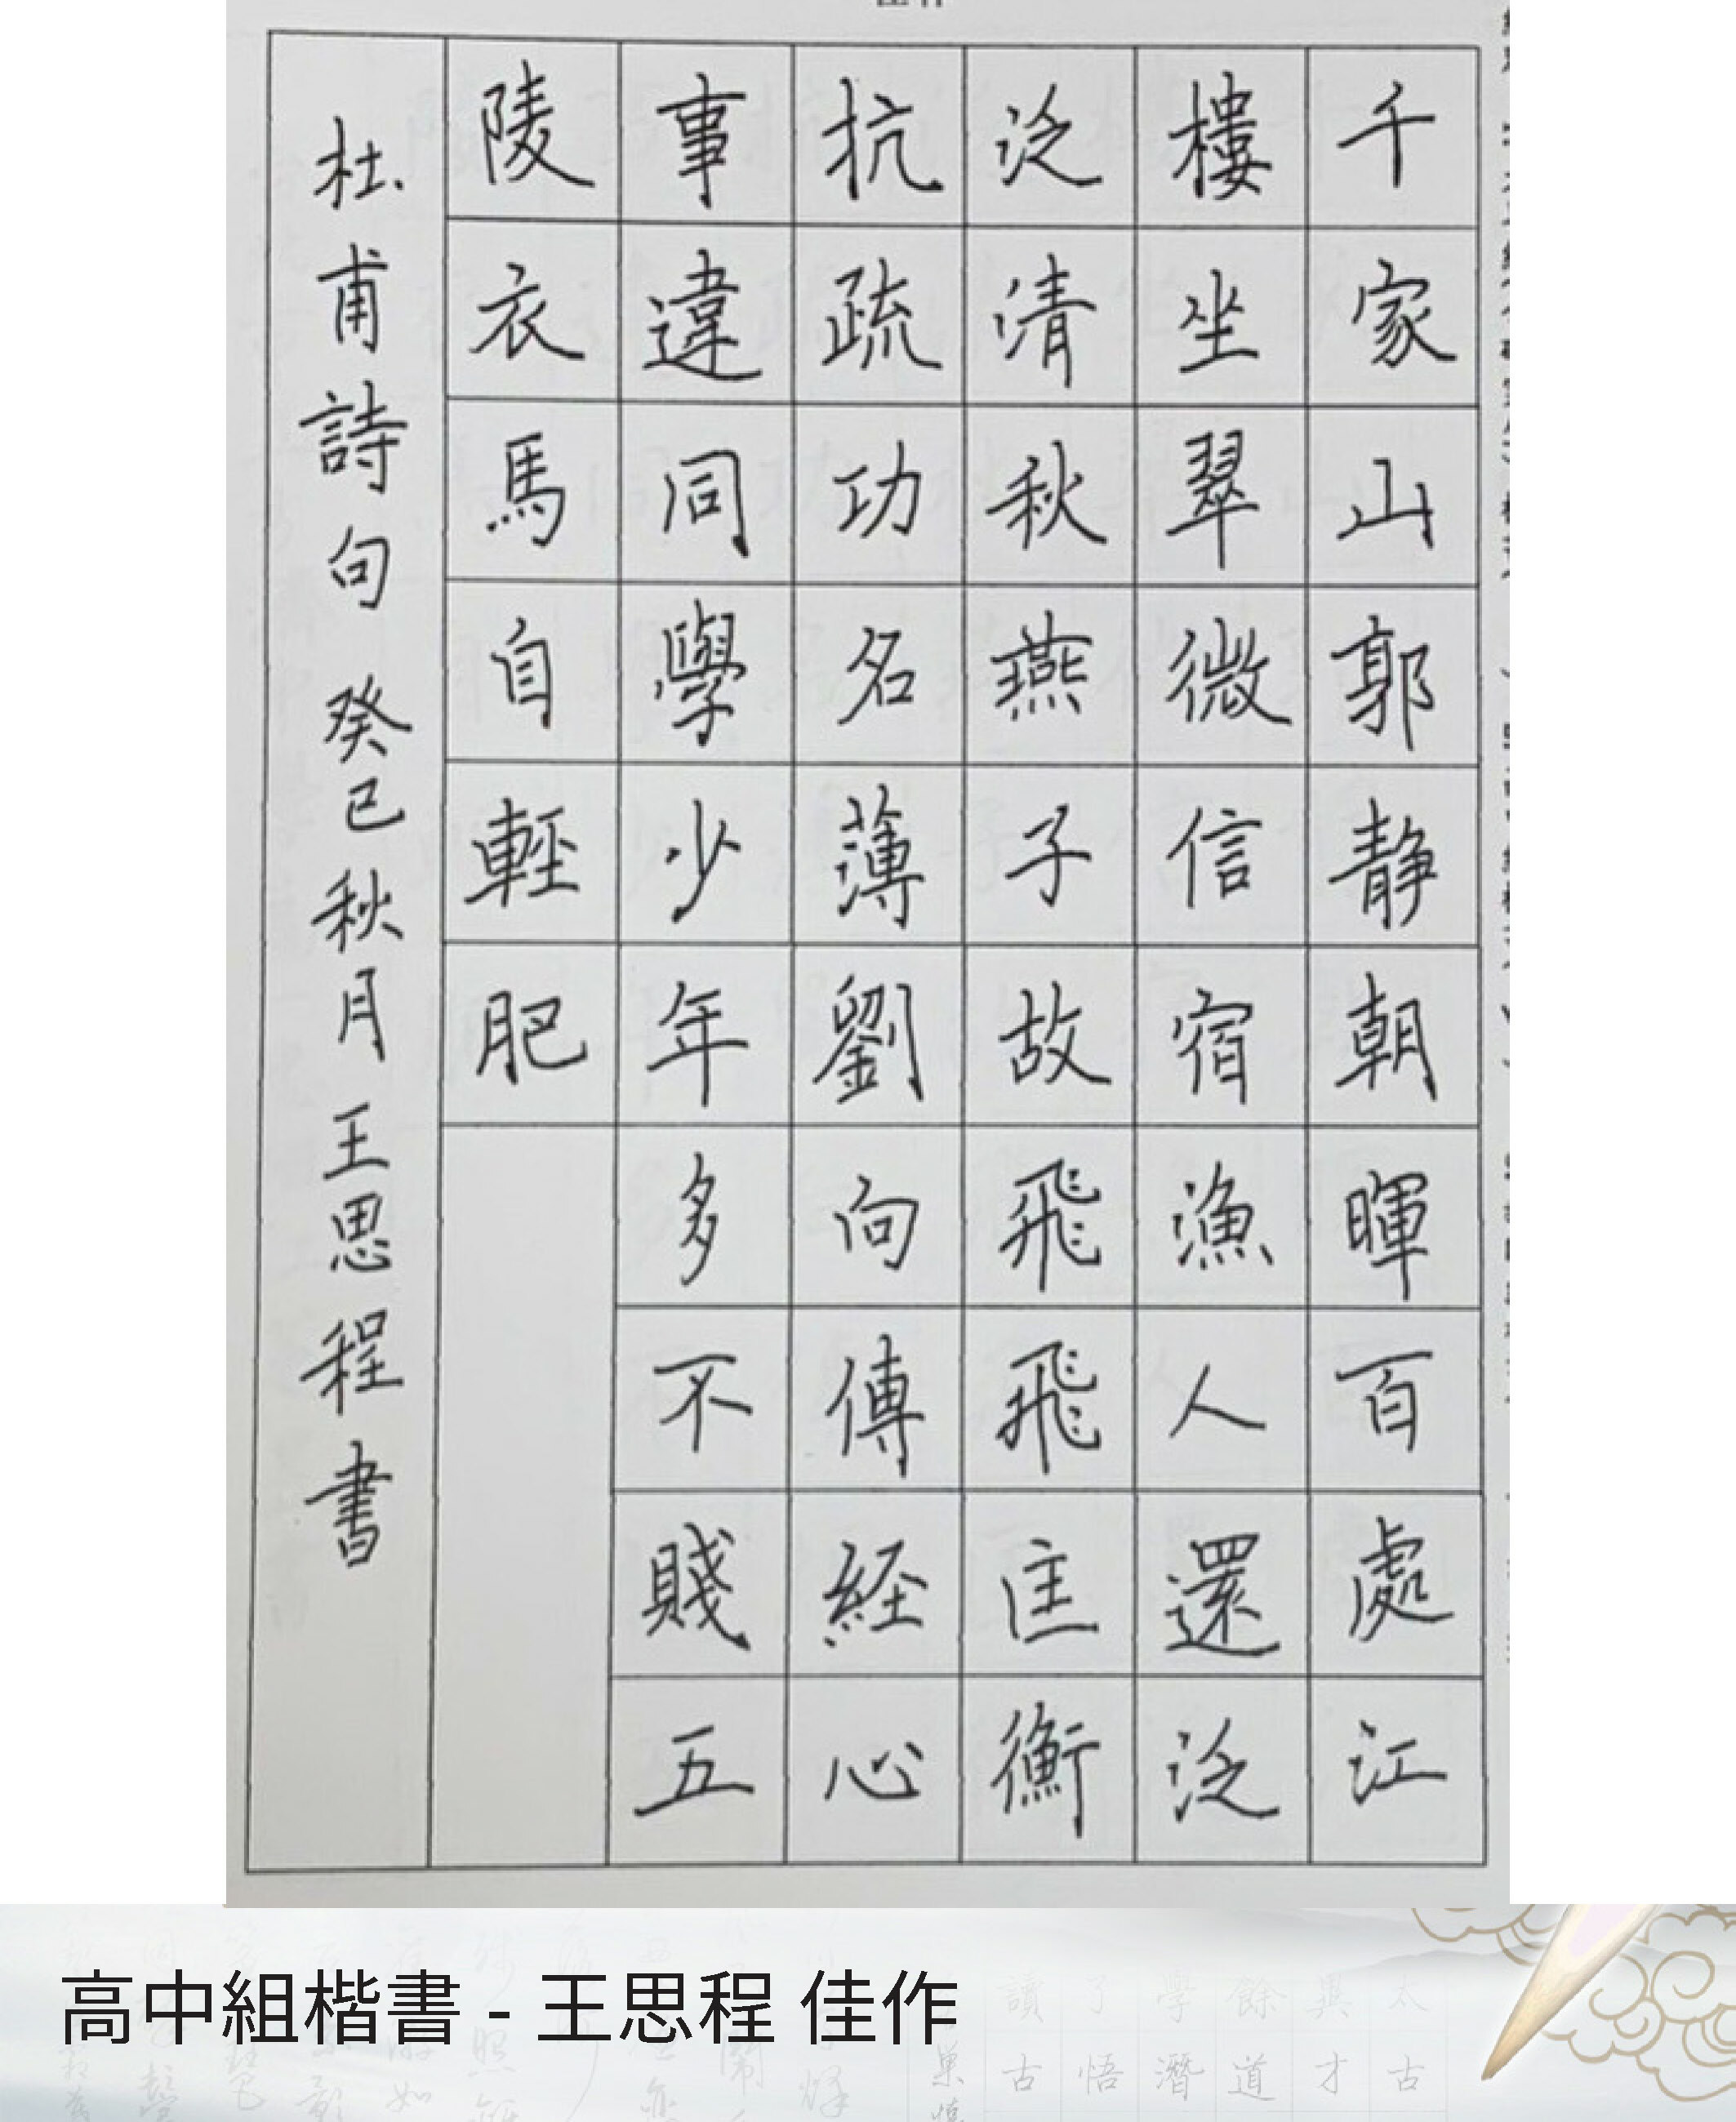 千家山郭静朝暉百處江
樓坐翠微信宿漁人還泛
泛清秋燕子故飛飛匡衡
抗疏功名薄劉向傳経心
事違同學少年多不賤五
陵衣馬自輕肥
杜甫詩句 癸已秋月王思程書
高中組楷書 - 王思程 佳作